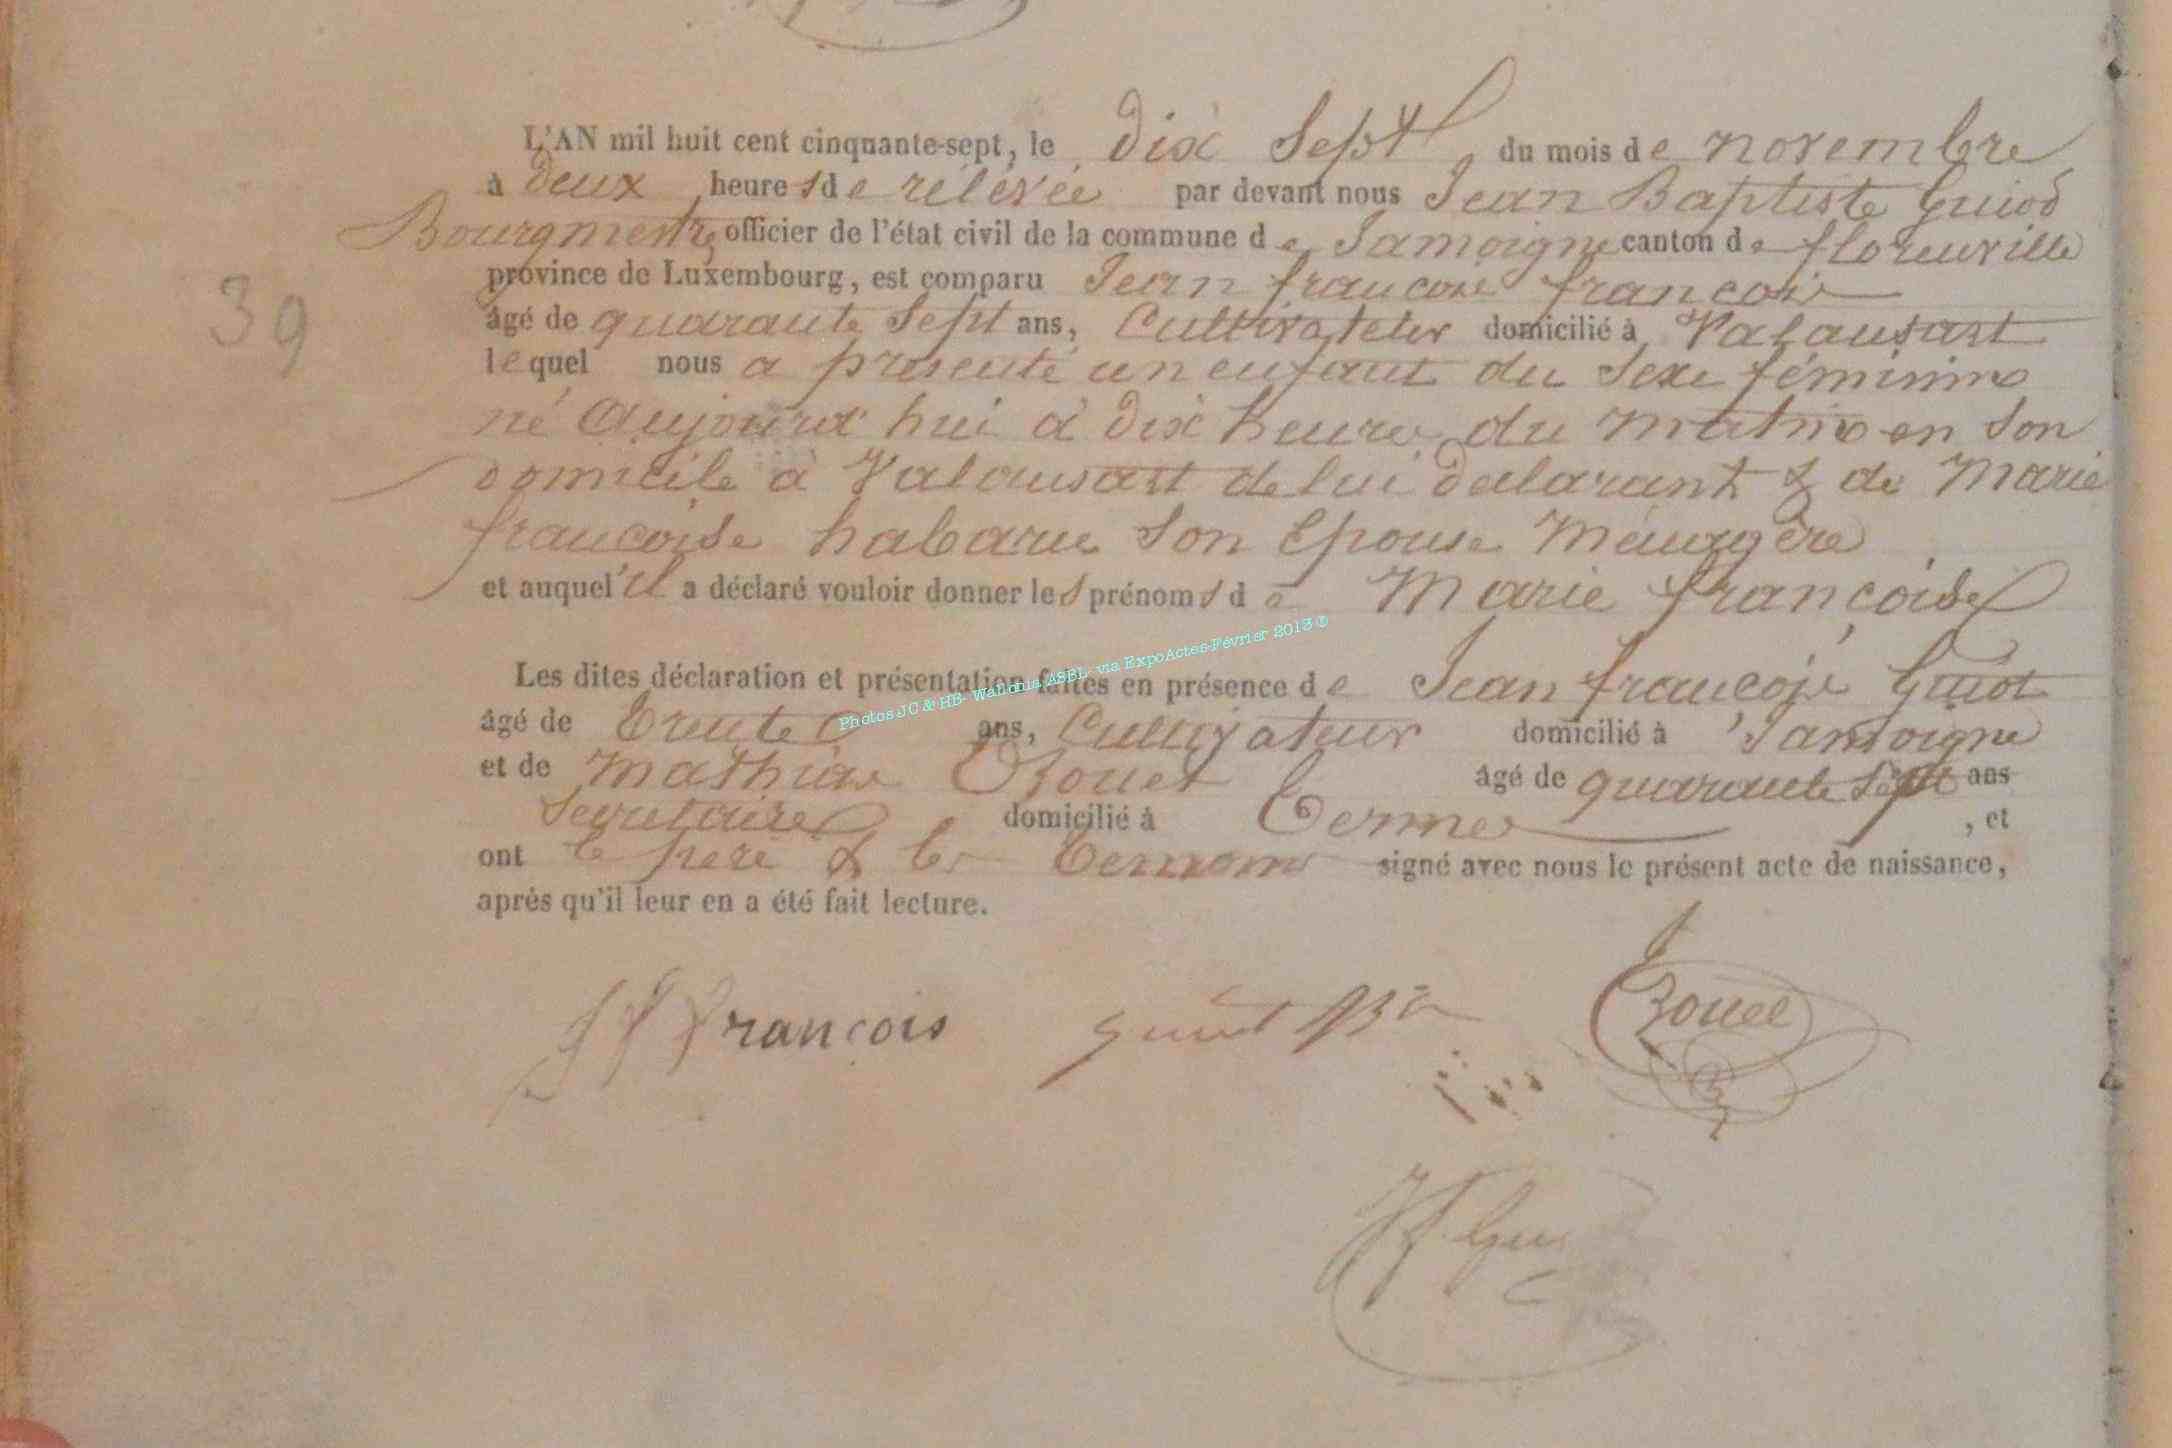 L'AN mil huit cent cinquante-sept, le dix Sept du mois de novembre
à deux heures de rélevée par devant nous Jean Baptiste Guiot
Bourgmestre, officier de l'état civil de la commune de Jamoigne canton de florenville
province de Luxembourg, est comparu Jean françois françois
39
âgé de quarante Sept ans, Cultivateur domicilié à Valansart
lequel nous a présenté un enfant du Sexe féminin
né aujourd'hui à dix heures du matin en Son
domicile à Valansart de lui déclarant & de Marie
françoise habaru Son Epouse Ménagère
et auquel il a déclaré vouloir donner les prénoms de Marie françoise
Les dites déclaration et présentation faites en présence de Jean françois Guiot
Photos JC & HB- Wallonia ASBL- via ExpoActes-Février 2013 ©
âgé de trente ans, Cultivateur domicilié à Jamoigne
et de Mathias Zouet âgé de quarante Sept ans
Secrétaire domicilié à Termes , et
ont le père & les témoins signé avec nous le présent acte de naissance,
après qu'il leur en a été fait lecture.
J f françois guiot Zouet